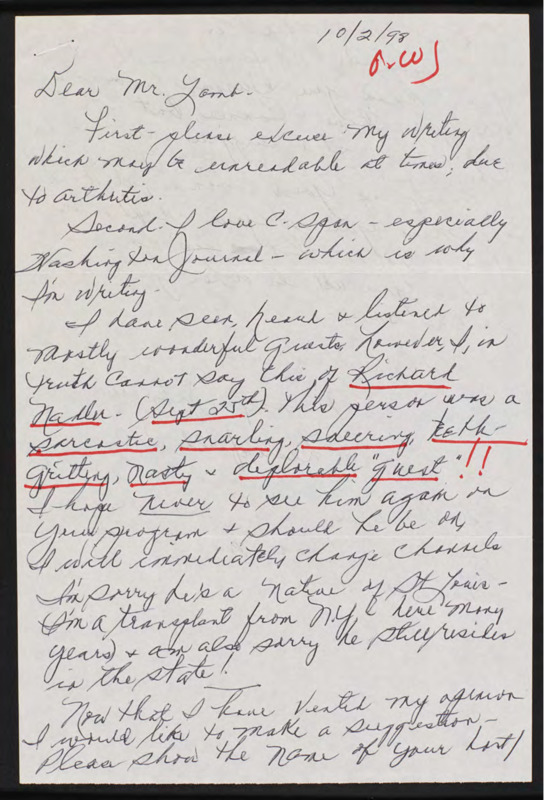 10/2/98
Dear Mr. Lamb -
First - please excuse my writing
which may be unreadable at times, due
to arthritis.
Second - I love C-Span - especially
Washington Journal - which is why
I'm writing -
I have seen, heard & listened to
mostly wonderful guests, however, I, in
truth cannot say this of Richard
Nadler - (Sept 25th). This person was a
sarcastic, snarling, sneering, teeth-
gritting, nasty & deplorable "guest"!!
I hope never to see him again on
your program & should he be on,
I will immediately change channels
I'm sorry he's a native of St Louis -
(I'm a transplant from N.Y. (here many
years) & am also sorry he still resides
in the state!
Now that I have vented my opinion
I would like to make a suggestion -
Please show the name of your host/